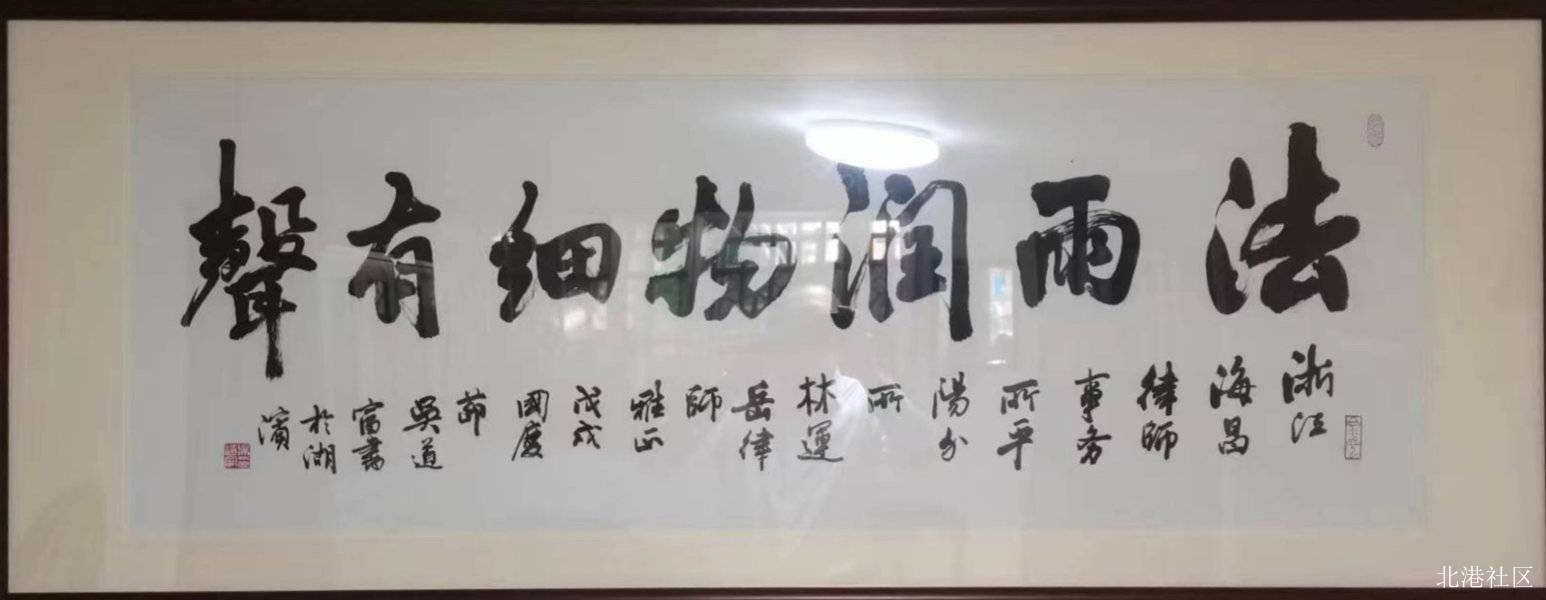 法雨润物细有聲
浙江
海昌
律师
事务
所平
陽分
所
林運
岳律
師
雅正
戊戌
國慶
節
吳道
富書
於湖
濱
北港社区